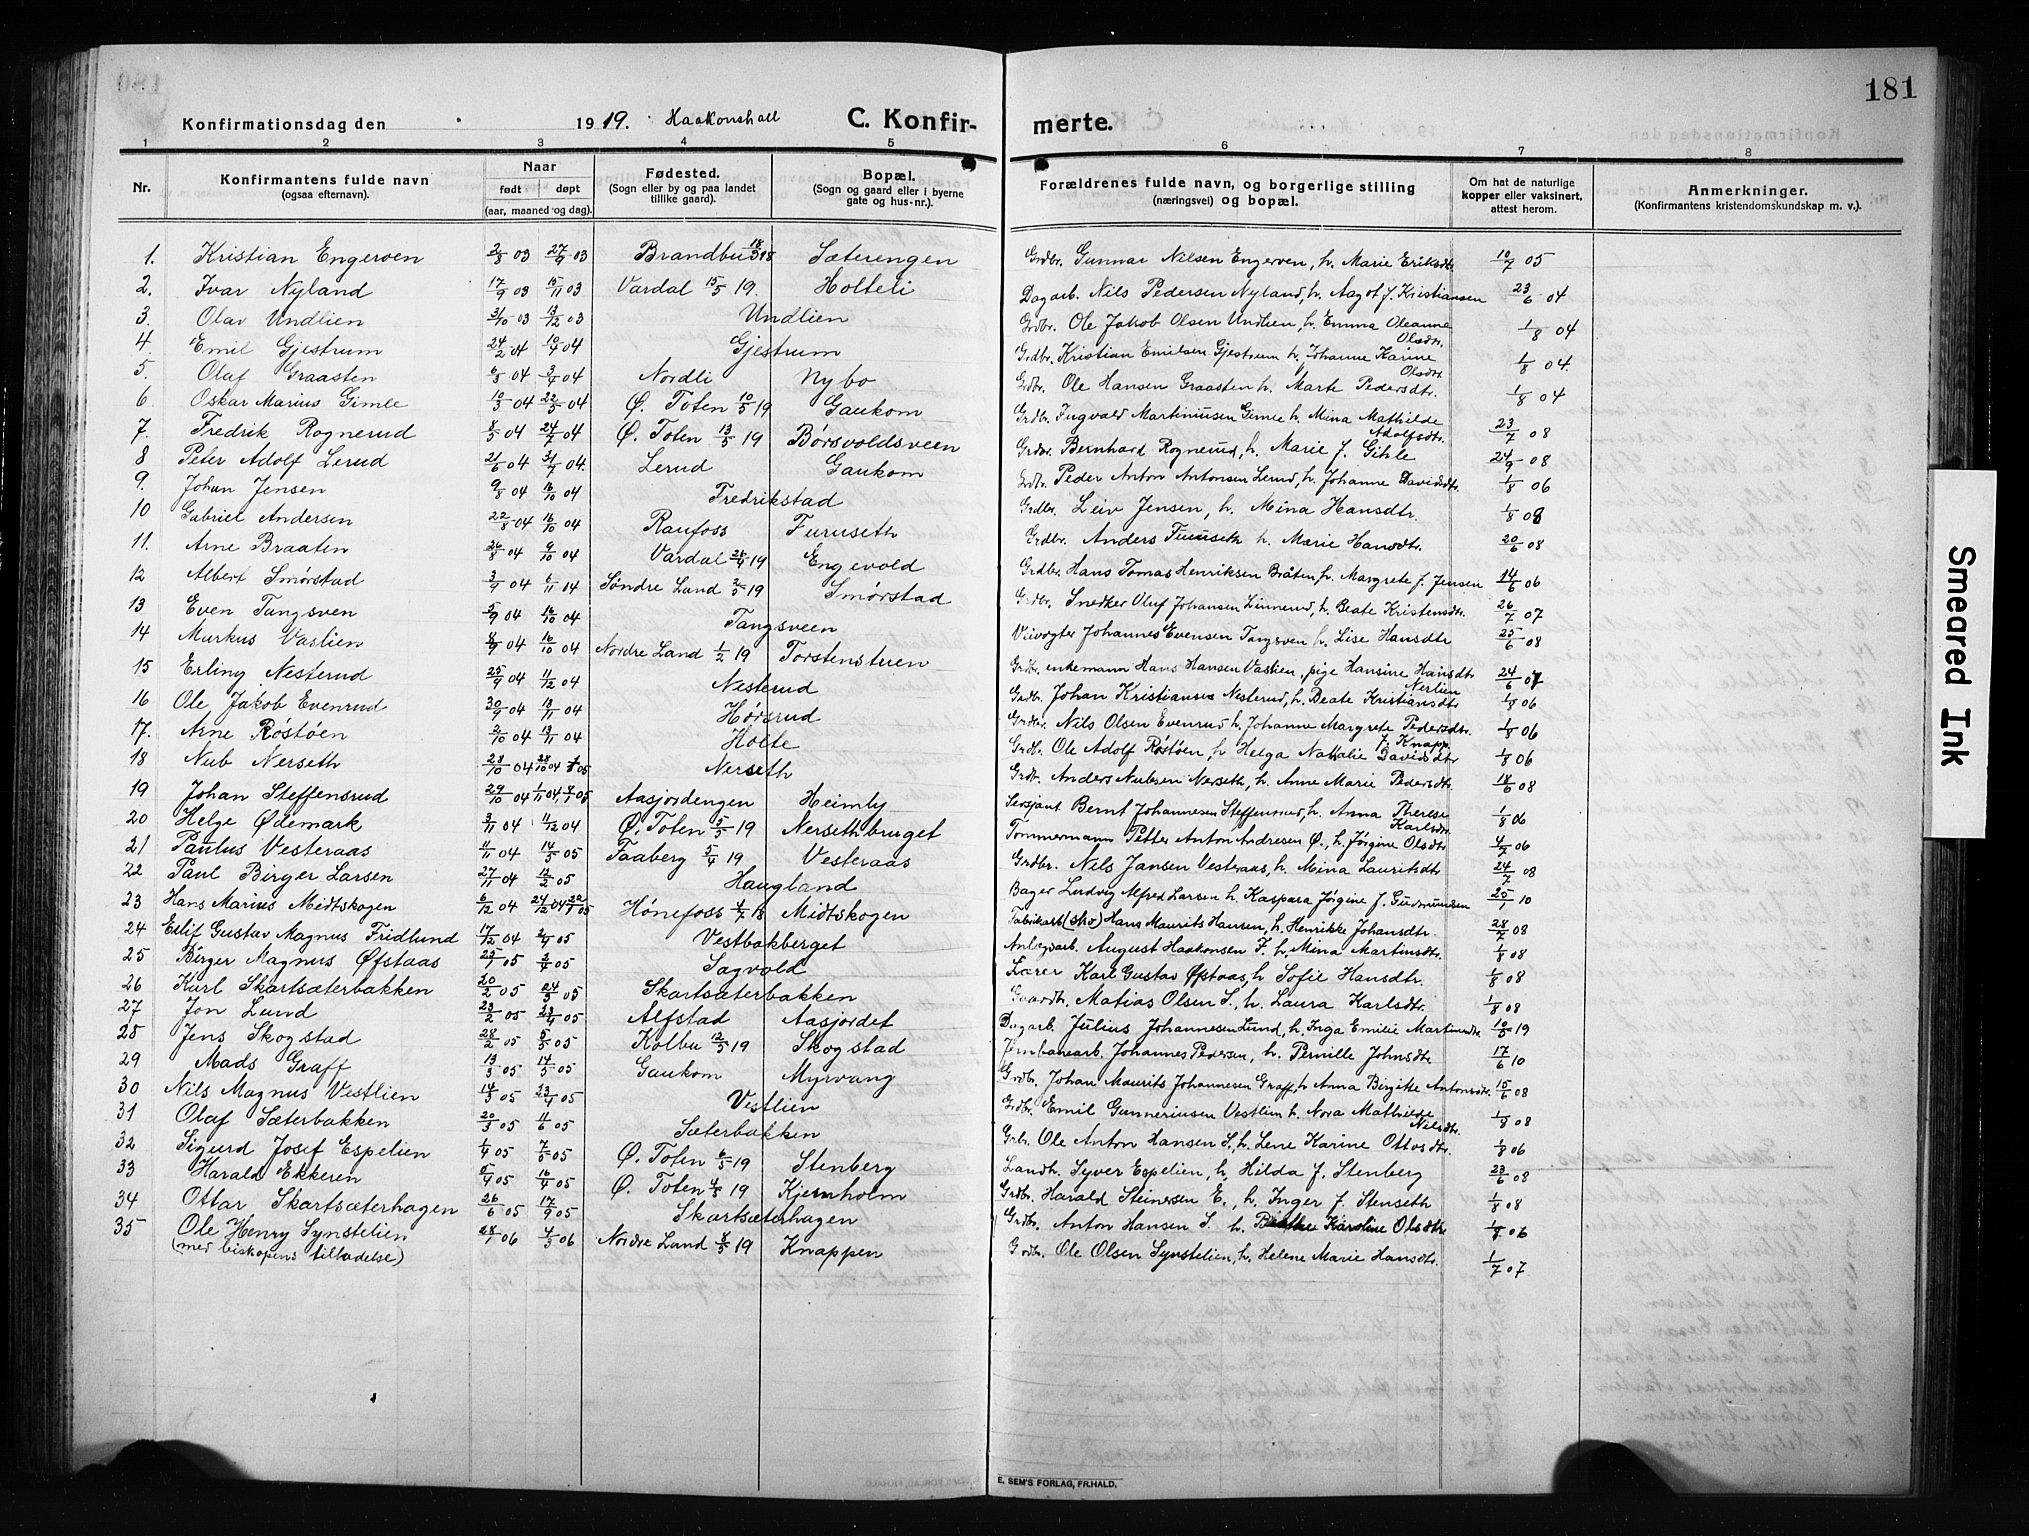 181
Konfirmationsdag den 1919. Haakonshall C. Konfir-merte.
1 2 3 4 5 6 7 8
Nr. Konfirmantens fulde navn (ogsaa efternavn). Naar født døpt (aar, maaned og dag). Fødested. (Sogn eller by og paa landet tillike gaard). Bopæl. (Sogn og gaard eller i byerne gate og hus-nr.). Forældrenes fulde navn, og borgerlige stilling (næringsvei) og bopæl. Om hat de naturlige kopper eller vaksinert, attest herom. Anmerkninger. (Konfirmantens kristendomskundskap m. v.).
1. Kristian Engerven 2/8 03 27/9 03 Brandbu 18/3 18 Sæterengen Grdbr. Gunnar Nilsen Engerven, h. Marie Eriksdtr. 10/7 05
2. Ivar Nyland 17/9 03 15/11 03 Vardal 15/5 19. Holteli Dagarb. Nils Pedersen Nyland, h. Aagot f. Kristiansen 23/6 04
3. Olav Undlien 3/10 03 13/12 03 Undlien Grdbr. Ole Jakob Olsen Undlien, h. Emma Oleanne Olsdtr. 1/8 04
4. Emil Gjestrum 24/2 04 10/4 04 Gjestrum Grdbr. Kristian Emilsen Gjestrum h. Johanne Karine Olsdtr. 1/8 04.
5. Olaf Graasten 6/3 04 3/4 04 Nordli Nybo Grdbr. Ole Hansen Graasten h. Marte Pedersdtr. 1/8 04
6 Oskar Marius Gimle 10/3 04 22/5 04 Ø. Toten 10/5 19 Gaukom Grdbr. Ingvald Martinusen Gimle h. Mina Mathilde Adolfsdtr. 23/7 08
7. Fredrik Rognerud 8/5 04 24/7 04 Ø. Toten 13/5 19 Børsvoldsveen Grdbr. Bernhard Rognerud, h. Marie f. Gihle 24/9 08
8 Peter Adolf Lerud 21/6 04 31/7 04. Lerud Gaukom Grdbr. Peder Anton Antonsen Lerud, h. Johanne Davidsdtr. 1/8 06
9. Johan Jensen 9/8 04 16/10 04 Fredrikstad Grdbr. Leiv Jensen, h. Mina Hansdtr. 1/8 08
10 Gabriel Andersen 22/8 04 16/10 04 Raufoss Furuseth Grdbr. Anders Furuseth h. Marie Hansdtr. 20/6 08
11. Arne Braaten 26/8 04 9/10 04 Vardal 25/4 19 Engevold Grdbr. Hans Tomas Henriksen Bråten, h. Margrete f. Jensen 14/6 06
12 Albert Smørstad 3/9 04 6/11 14 Søndre Land 2/5 19 Smørstad Grdbr. Snedker Oluf Johansen Linnerud, h. Beate Kristensdtr. 26/7 07
13 Even Tangsven 5/9 04 16/10 04 Tangsveen Veivogter Johannes Evensen Tangsven h. Lise Hansdtr 25/6 08
14 Markus Vaslien 8/9 04 16/10 04 Nordre Land 1/2 19 Torstenstuen Grdbr. enkemann Hans Hansen Vaslien, pige Hansine Hansdtr Nerlien 24/6 07
15 Erling Nesterud 25/9 04 11/12 04 Nesterud Grdbr. Johan Kristiansen Nesterud, h. Beate Kristiansdtr 1/8 06
16 Ole Jakob Evenrud 30/9 04 13/11 04 Hørsrud Grdbr. Nils Olsen Evenrud h. Johanne Margrete Pedersdtr. f. Knapp 1/8 06
17. Arne Røstøen 2/10 04 13/11 04 Holte Grdb. Ole Adolf Røstøen, h. Helga Nathalie Davidsdtr 1/8 06
18 Nub Nerseth 28/10 04 28/10 04 05 Nerseth Grdb. Anders Nubsen Nerseth, h. Anne Marie Pedersdtr. 18/6 08
19 Johan Steffensrud 29/10 04 1/11 04, 05 Aasjordengen Heimly Sersjant Bernt Johannesen Steffensrud, h. Anna Therese Karlsdtr. 1/8 06
20 Helge Ødemark 3/11 04 11/12 04 Ø. Toten 5/5 19 Nersethbruget Tømmermann Petter Anton Andresen Ø., h. Jørgine Olsdtr 4/7 06
21 Paulus Vesteraas 11/11 04 14/5 05 Faaberg 5/4 19 Vesteraas Grdbr. Nils Jansen Vesteraas, h. Mina Lauritsdtr 24/7 08
22 Paul Birger Larsen 27/11 04 12/2 05 Haugland Bager Ludvig Alfred Larsen h. Kaspara Jørgine f. Gudmundsen 25/1 10
23 Hans Marius Midtskogen 6/12 04 24/12 04 22/1 05 Hønefoss 4/7 18 Midtskogen Fabrikarb (sko) Hans Maurits Hansen, h. Henrikke Johansdtr. 28/7 08
24 Eilif Gustav Magnus Fridlund 17/12 04 2/4 05 Vestbakberget Anlegsarb. August Haakonsen F. h. Mina Martinsdtr. 1/8 08
25 Birger Magnus Øfstaas 25/1 05 2/4 05 Sagvold Lærer Karl Gustav Øfstaas, h. Sofie Hansdtr. 1/8 08
26 Karl Skartsæterbakken 20/2 05 24/3 05 Skartsæterbakken Gaardb. Matias Olsen S., h. Laura Karlsdtr. 1/8 08
27 Jon Lund 23/2 05 23/4 05 Alfstad Aasjordet Dagarb. Julius Johannesen Lund, h. Inga Emilie Martinsdtr. 10/5 19
25 Jens Skogstad 28/2 05 5/5 05 Kolbu 12/5 19 Skogstad Jernbanearb. Johannes Pedersen, h. Pernille Johnsdtr 17/6 10
29 Mads Graff 13/3 05 14/5 05 Gaukom Myrvang Grdbr. Johan Maurits Johannesen Graff, h Anna Birgitte Antonsdtr. 15/6 08
30 Nils Magnus Vestlien 14/3 05 23/4 05 Vestlien Grdbr. Emil Gunneriusen Vestlien h. Nora Mathilde Nilsdtr. 1/8 08
31 Olaf Sæterbakken 20/3 05 11/6 05 Sæterbakken Grbr. Ole Anton Hansen S., h. Lene Karine Ottosdtr. 1/8 06
32 Sigurd Josef Espelien 1/4 05 7/5 05 Ø. Toten 6/5 19 Stenberg Landh. Syver Espelien, h. Hilda f. Stenberg 23/6 08
33 Harald Ekkeren 5/4 05 16/4 05 Ø. Toten 19 Kjernholm Grdbr. Harald Steinesen E., h. Inger f. Stenseth 1/8 08
34 Ottar Skartsæterhagen 26/6 05 17/9 05 Skartsæterhagen Grdbr. Anton Hansen S. h. Karoline Olsdtr 1/8 06
35 Ole Henry Synstelien 28/1 06 4/3 06 Nordre Land 8/5 19 Knappen Grdbr. Ole Olsen Synstelien, h. Helene Marie Hansdtr. 1/7 07
(med biskopens tilladelse)
E. SEM'S FORLAG, FR.HALD.
Smeared Ink